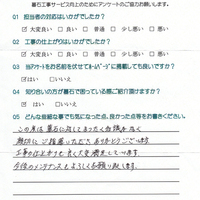 墓石工事サービス向上のためにアンケートのご協力お願いします。
01 担当者の対応はいかがでしたか?
☑大変良い □良い □普通 □少し悪い □悪い
02 工事の仕上がりはいかがでしたか?
☑大変良い □良い □普通 □少し悪い □悪い
03 当アンケートをお名前を伏せてホームページに掲載しても良いですか?
☑はい □いいえ
04 知り合いの方が墓石で困っている際にご紹介頂けますか?
☑はい □いいえ
05 どんな些細な事でも気になった点、良かった点等をお書きください。
この度は墓石に関してまったく知識がなく
親切にご指導いただき ありがとうございます
工事の仕上がりも良く大変満足しています
今後のメンテナンスもよろしくお願い致します。